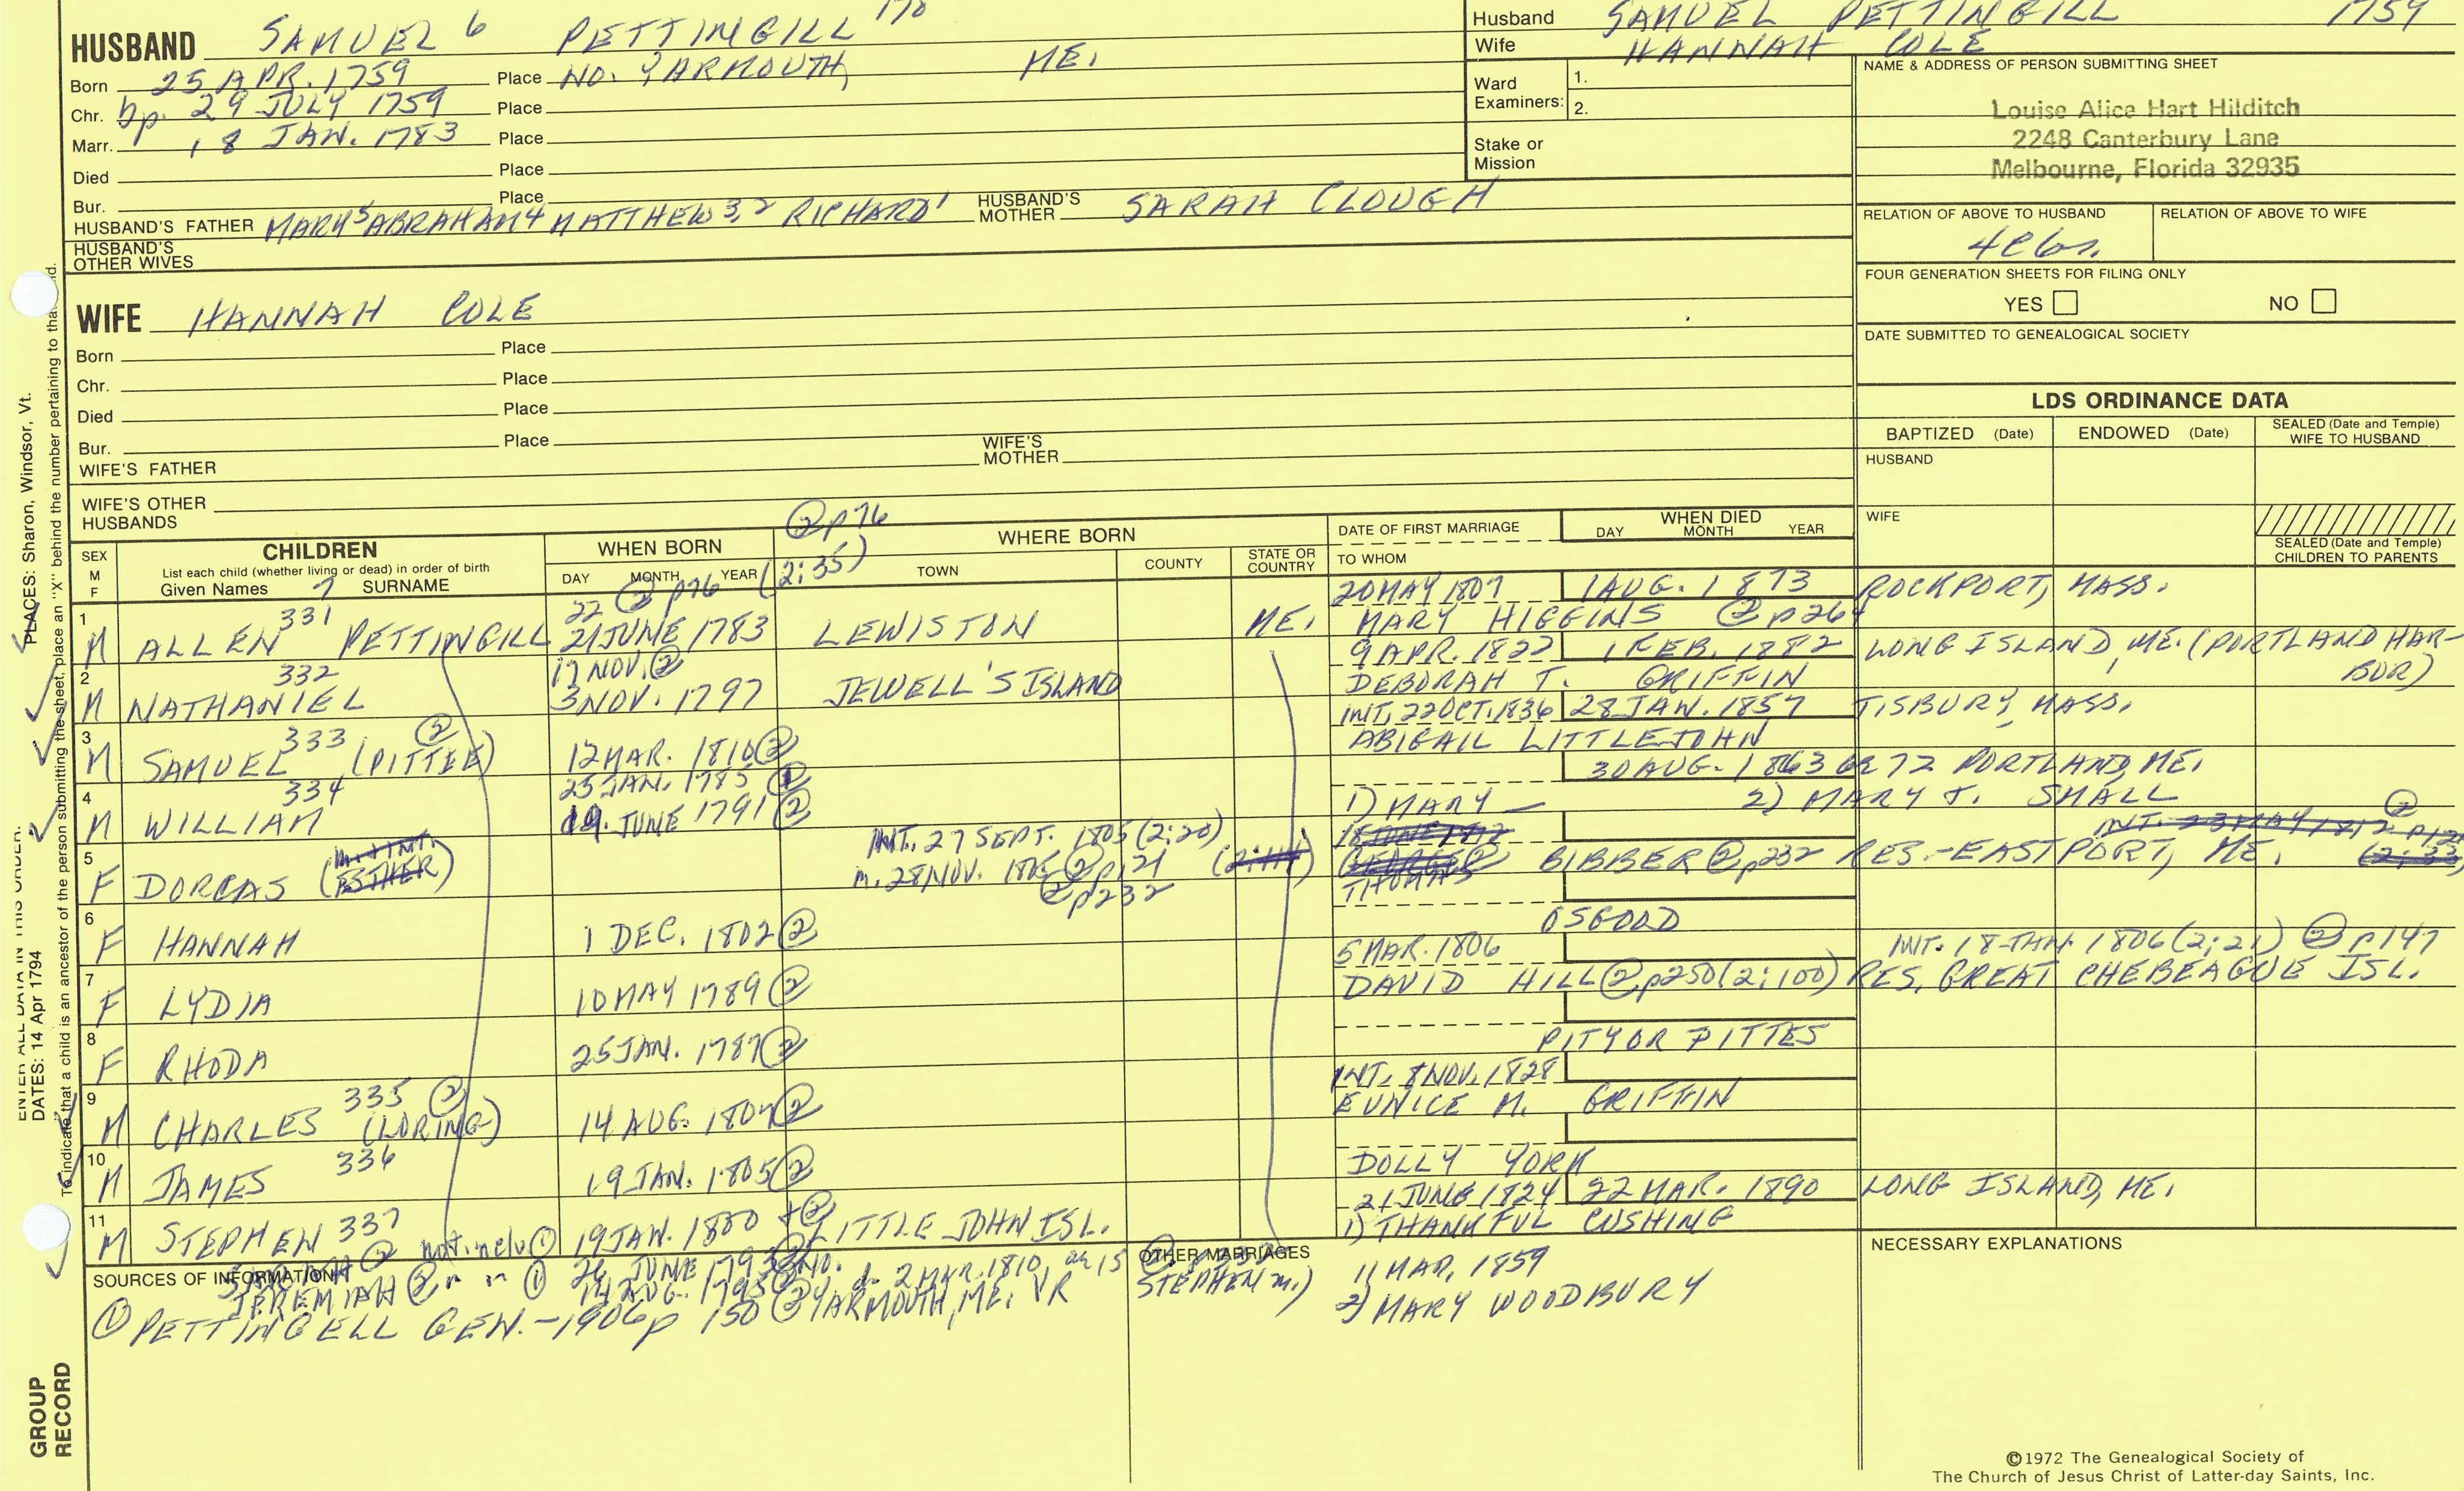 HUSBAND SAMUEL 6 PETTINGILL 170
Born 25 APR. 1759 Place NO. YARMOUTH, ME.
Chr. bp. 29 JULY 1759 Place
Marr. 18 JAN. 1783 Place
Died Place
Bur. Place
HUSBAND'S FATHER MARK 5 ABRAHAM 4 MATTHEW 3, 2 RICHARD 1 HUSBAND'S MOTHER SARAH CLOUGH
HUSBAND'S OTHER WIVES
Husband SAMUEL PETTINGILL 1759
Wife HANNAH COLE
Ward Examiners: 1.
2.
Stake or Mission
NAME & ADDRESS OF PERSON SUBMITTING SHEET
Louise Alice Hart Hilditch
2248 Canterbury Lane
Melbourne, Florida 32935
RELATION OF ABOVE TO HUSBAND RELATION OF ABOVE TO WIFE
FOUR GENERATION SHEETS FOR FILING ONLY
YES NO
DATE SUBMITTED TO GENEALOGICAL SOCIETY
WIFE HANNAH COLE
Born Place
Chr. Place
Died Place
Bur. Place
WIFE'S FATHER WIFE'S MOTHER
WIFE'S OTHER HUSBANDS
LDS ORDINANCE DATA
BAPTIZED (Date) ENDOWED (Date) SEALED (Date and Temple) WIFE TO HUSBAND
HUSBAND
WIFE
SEALED (Date and Temple) CHILDREN TO PARENTS
② p76
(2:35)
SEX M F
CHILDREN
List each child (whether living or dead) in order of birth
Given Names 7 SURNAME
WHEN BORN
DAY MONTH YEAR
WHERE BORN
TOWN COUNTY STATE OR COUNTRY
DATE OF FIRST MARRIAGE
TO WHOM
WHEN DIED
DAY MONTH YEAR
22 ② p76 20 MAY 1807 1 AUG. 1873 ROCKPORT, MASS.
1 M ALLEN 331 PETTINGILL 21 JUNE 1783 LEWISTON ME. MARY HIGGINS ② p264
17 NOV. ② 9 APR. 1822 1 FEB. 1882 LONG ISLAND, ME. (PORTLAND HARBOR)
2 M NATHANIEL 332 3 NOV. 1797 JEWELL'S ISLAND DEBORAH T. GRIFFIN
INT. 22 OCT. 1836 28 JAN. 1857 TISBURY, MASS.
3 M SAMUEL 333 (PITTEE) ② 12 MAR. 1810 ② ABIGAIL LITTLEJOHN
25 JAN. 1785 ① 30 AUG. 1863 PORTLAND, ME.
4 M WILLIAM 334 19 JUNE 1791 ② 1) MARY — 2) MARY J. SMALL
INT. 27 SEPT. 1805 (2:20) 18 JUNE 1812 INT. 23 MAY 1812
5 F DORCAS (ESTHER) m. 28 NOV. 1805 ② p121 BIBBER ② p232 RES.-EASTPORT, ME.
② p232 THOMAS
6 F HANNAH 1 DEC. 1802 ② OSGOOD
5 MAR. 1806 INT. 18 JAN. 1806 (2:21) ② p147
7 F LYDIA 10 MAY 1789 ② DAVID HILL ② p250 (2:100) RES. GREAT CHEBEAGUE ISL.
8 F RHODA 25 JAN. 1787 ② PITY OR PITTES
INT. 8 NOV. 1828
9 M CHARLES 335 ② (LORING) 14 AUG. 1807 ② EUNICE M. GRIFFIN
10 M JAMES 336 19 JAN. 1805 ② DOLLY YORK
21 JUNE 1824 22 MAR. 1890 LONG ISLAND, ME.
11 M STEPHEN 337 19 JAN. 1800 + ② LITTLE JOHN ISL. 1) THANKFUL CUSHING
SOURCES OF INFORMATION
② not inclu ① 26 JUNE 1793 d. 2 MAR. 1810, ae 15
JEREMIAH ② " " ① 14 AUG. 1795
① PETTINGELL GEN.-1906 p 150 ② NO. YARMOUTH, ME. VR
OTHER MARRIAGES
STEPHEN m.) 11 MAR. 1859
2) MARY WOODBURY
NECESSARY EXPLANATIONS
©1972 The Genealogical Society of
The Church of Jesus Christ of Latter-day Saints, Inc.
ENTER ALL DATA IN THIS ORDER:
DATES: 14 Apr 1794
PLACES: Sharon, Windsor, Vt.
To indicate that a child is an ancestor of the person submitting the sheet, place an "X" behind the number pertaining to that
GROUP RECORD